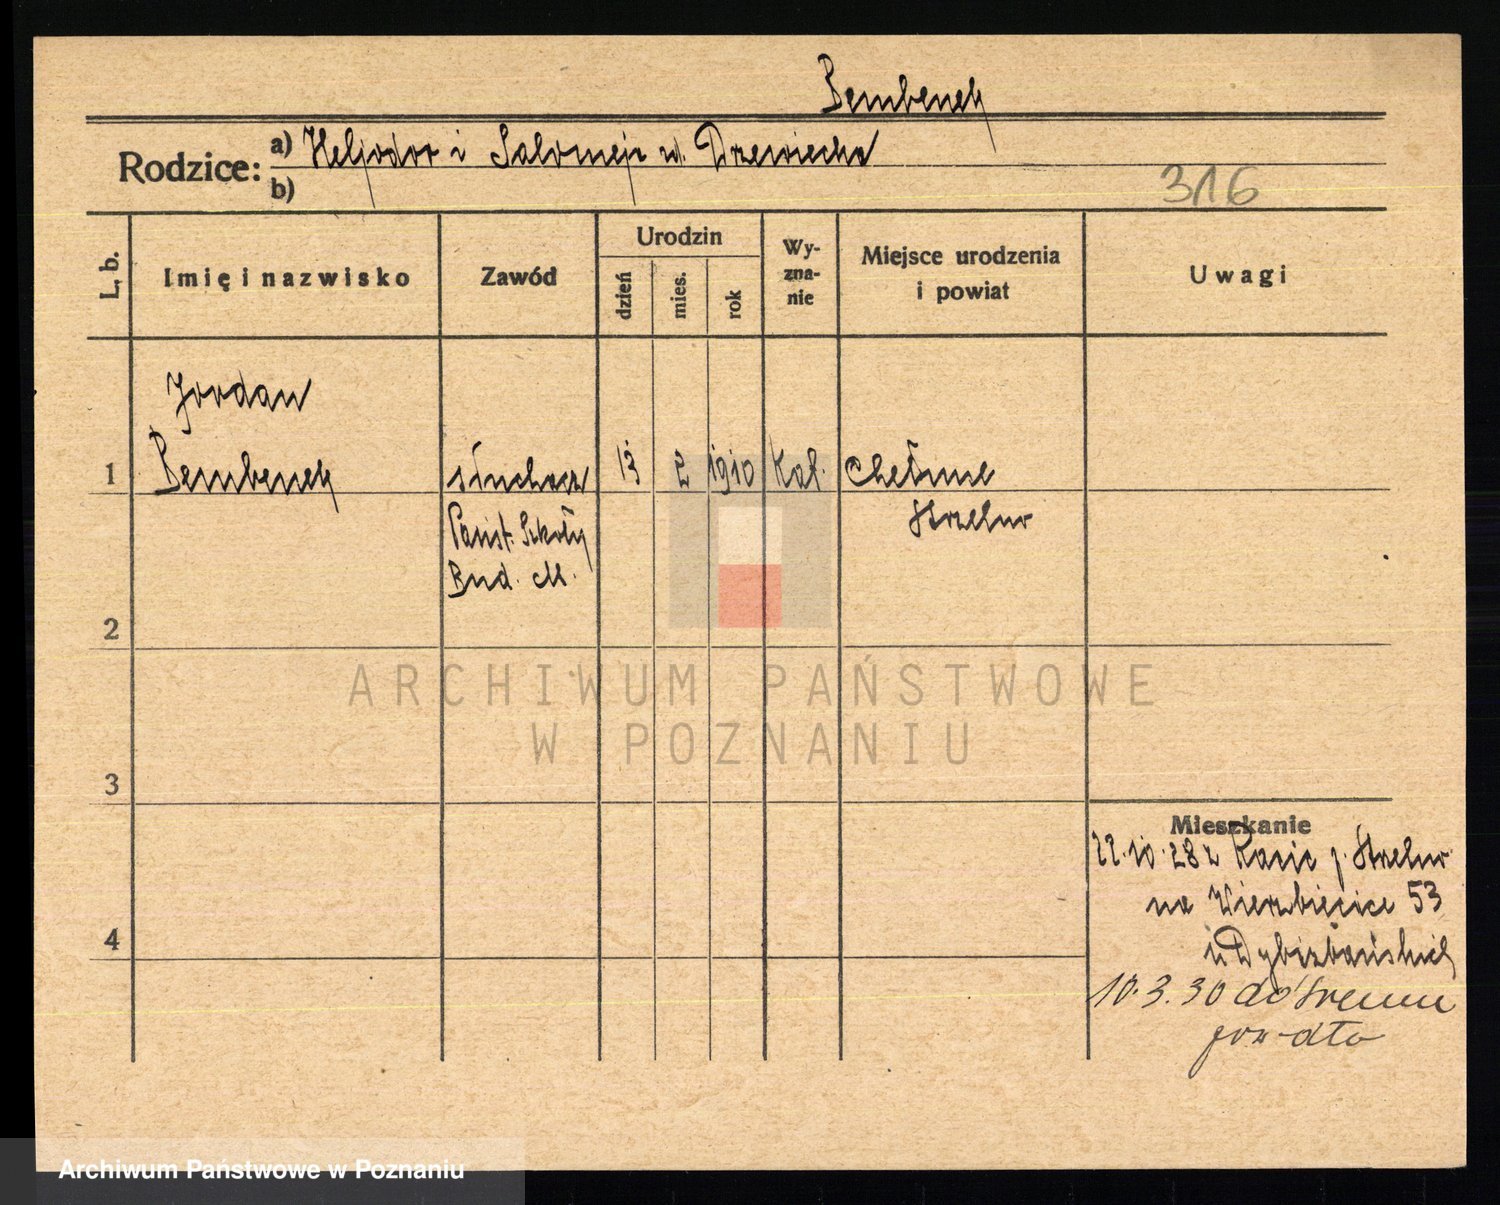 Bembenek
Rodzice: a) Heljodor i Salomeja z d. Drzewiecka
b)
316
L. b.
Imię i nazwisko
Zawód
Urodzin
dzień
mies.
rok
Wy-
zna-
nie
Miejsce urodzenia
i powiat
Uwagi
Jordan
1 Bembenek słuchacz 13 2 1910 Kat. Chełmce
Strzelno
Państ. Szkoły
Bud. M.
2
ARCHIWUM PAŃSTWOWE
W POZNANIU
3
Mieszkanie
22.10.28 z p. Strzelno
na Wierzbięcice 53
u Dybizbańskich
4
10.3.30 do Śremu
Archiwum Państwowe w Poznaniu